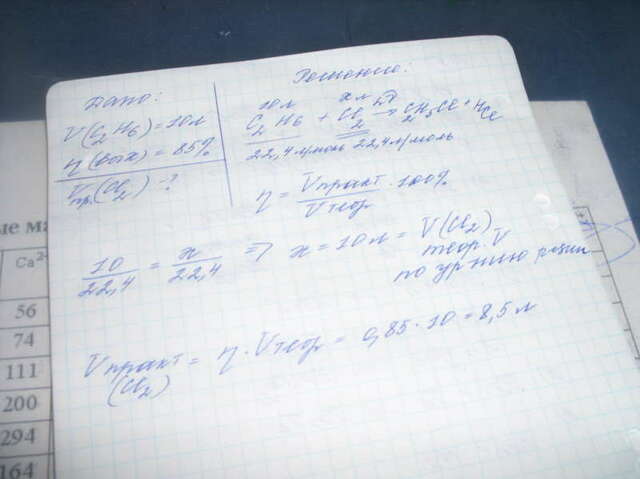 Дано:
V(C2H6)=10л
η(вых)=85%
Vпр.(Cl2)-?
Решение:
10л xл
C2H6 + Cl2 → C2H5Cl + HCl
22,4л/моль 22,4л/моль
η = Vпракт / Vтеор · 100%
10/22,4 = x/22,4 => x = 10л = V(Cl2)
теор. V
по ур-нию реции
Vпракт = η · Vтеор = 0,85 · 10 = 8,5 л
(Cl2)
Ca2
56
74
111
200
294
164